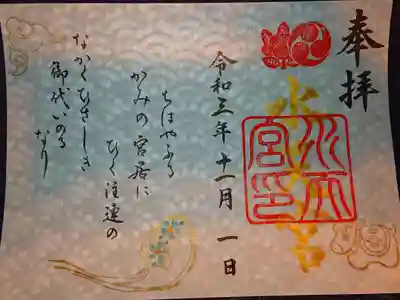 奉拝
水天宮
水天宮印
令和三年十一月一日
ちはやふる
かみの宮居に
ひく注連の
なかくひさしき
御代いのる
なり